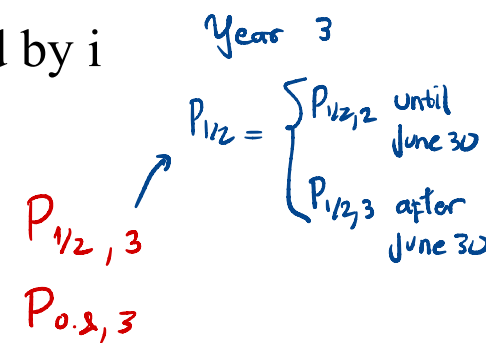 d by i
Year 3
P1/2 = { P1/2,2 until
June 30
P1/2,3 after
June 30
P1/2, 3
P0.8, 3